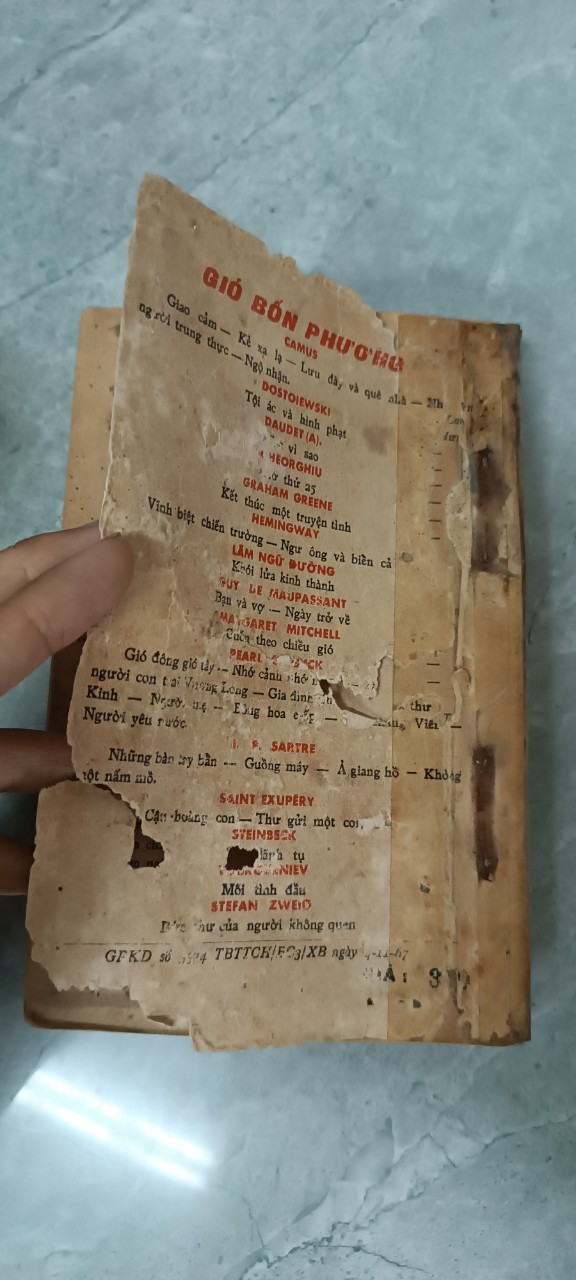 GIÓ BỐN PHƯƠNG
CAMUS
Giao cảm — Kẻ xa lạ — Lưu đầy và quê nhà —
người trung thực — Ngộ nhận.
DOSTOIEWSKI
Tội ác và hình phạt
DAUDET (A).
vì sao
GHEORGHIU
thứ 25
GRAHAM GREENE
Kết thúc một truyện tình
HEMINGWAY
Vĩnh biệt chiến trường — Ngư ông và biển cả
LÂM NGỮ ĐƯỜNG
Khói lửa kinh thành
GUY DE MAUPASSANT
Bạn và vợ — Ngày trở về
MARGARET MITCHELL
Cuốn theo chiều gió
PEARL
Gió đông gió tây — Nhớ cảnh nhớ
người con trai Vương Long — Gia đình thư
Kinh — Người mẹ — hoa — Viên —
Người yêu nước
J. P. SARTRE
Những bàn tay bẩn — Guồng máy — Ả giang hồ — Không
một nấm mồ.
SAINT EXUPÉRY
Cậu hoàng con — Thư gửi một con
STEINBECK
lãnh tụ
Mối tình đầu
STEFAN ZWEIG
Bức thư của người không quen
GFKD số TBTTCH/ /XB ngày -11-67
GIÁ :